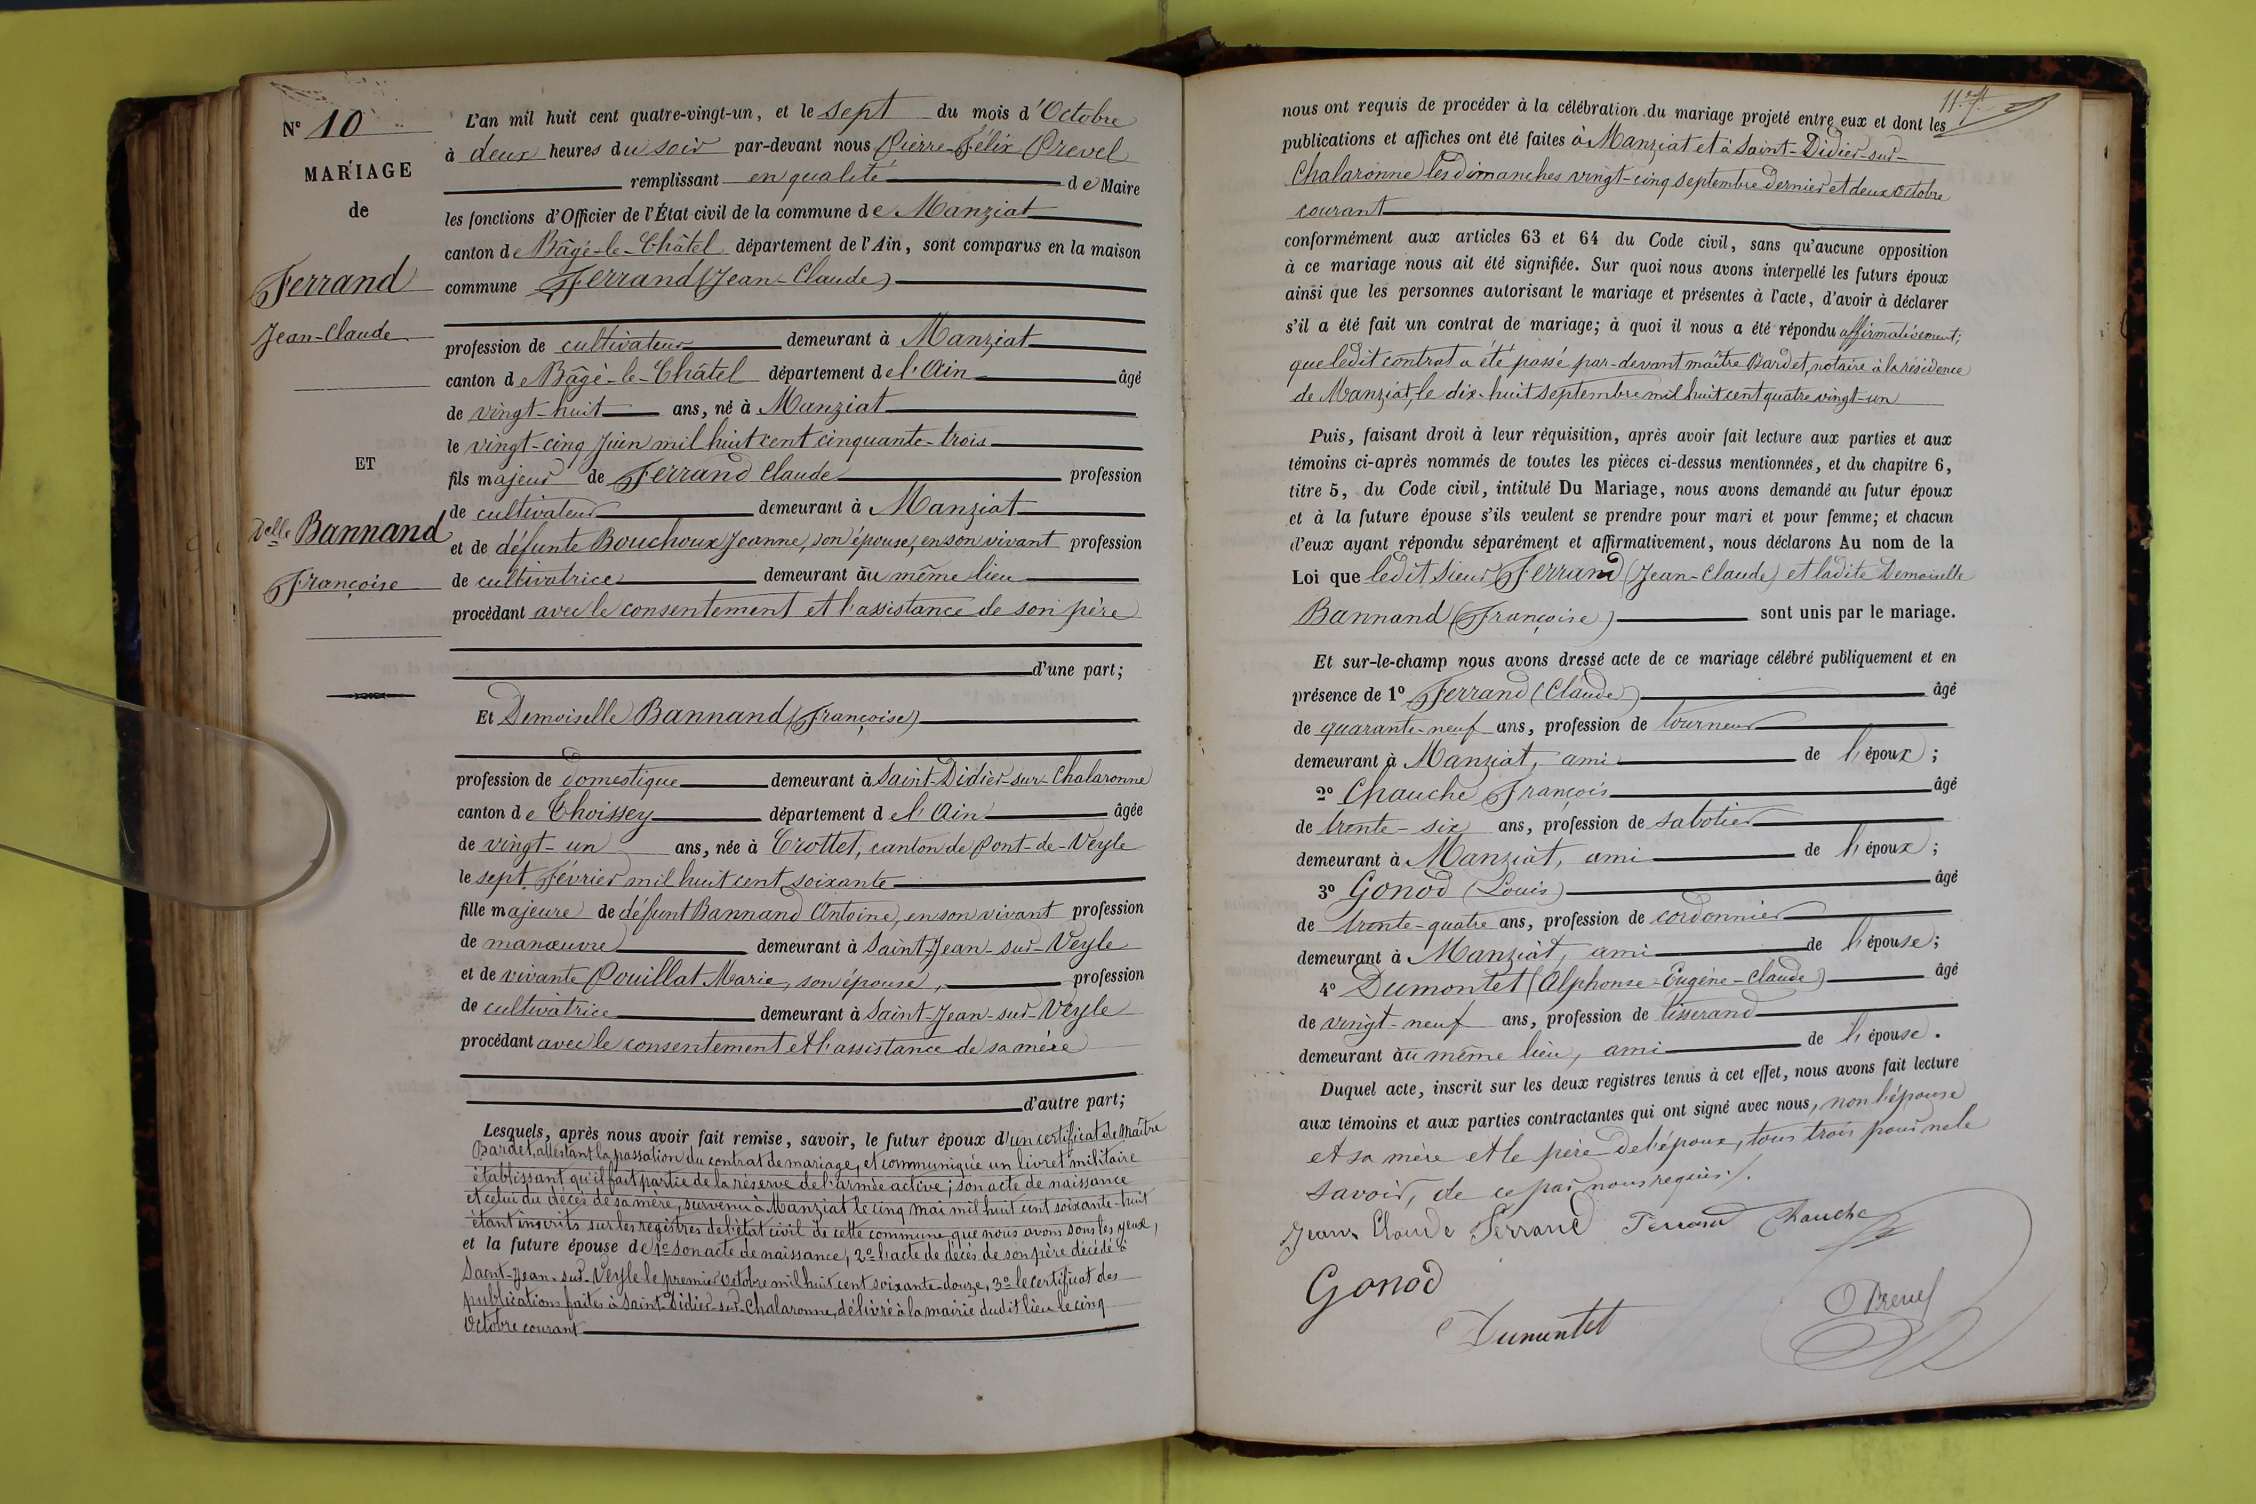 N° 10
MARIAGE
de
Ferrand
Jean-Claude
ET
Delle Bannand
Françoise
L'an mil huit cent quatre-vingt-un, et le sept du mois d'Octobre
à deux heures du soir par-devant nous Pierre-Félix Prevel
remplissant en qualité de Maire
les fonctions d'Officier de l'État civil de la commune de Manziat
canton de Bâgé-le-Châtel département de l'Ain, sont comparus en la maison
commune Ferrand (Jean-Claude)
profession de cultivateur demeurant à Manziat
canton de Bâgé-le-Châtel département de l'Ain âgé
de vingt-huit ans, né à Manziat
le vingt-cinq Juin mil huit cent cinquante-trois
fils majeur de Ferrand Claude profession
de cultivateur demeurant à Manziat
et de défunte Bouchoux Jeanne, son épouse, en son vivant profession
de cultivatrice demeurant au même lieu
procédant avec le consentement et l'assistance de son père
d'une part;
Et Demoiselle Bannand (Françoise)
profession de domestique demeurant à Saint-Didier-sur-Chalaronne
canton de Thoissey département de l'Ain âgée
de vingt-un ans, née à Crottet, canton de Pont-de-Veyle
le sept Février mil huit cent soixante
fille majeure de défunt Bannand Antoine, en son vivant profession
de manœuvre demeurant à Saint-Jean-sur-Veyle
et de vivante Pouillat Marie, son épouse, profession
de cultivatrice demeurant à Saint-Jean-sur-Veyle
procédant avec le consentement et l'assistance de sa mère
d'autre part;
Lesquels, après nous avoir fait remise, savoir, le futur époux d'un certificat de Maître
Bardet, attestant la passation du contrat de mariage, et communiquée un livret militaire
établissant qu'il fait partie de la réserve de l'armée active; son acte de naissance
et celui du décès de sa mère, survenu à Manziat le cinq mai mil huit cent soixante-huit
étant inscrits sur les registres de l'état civil de cette commune que nous avons sous les yeux,
et la future épouse de 1° son acte de naissance, 2° l'acte de décès de son père décédé à
Saint-Jean-sur-Veyle le premier Octobre mil huit cent soixante-douze, 3° le certificat des
publications faites à Saint-Didier-sur-Chalaronne, délivré à la mairie dudit lieu le cinq
Octobre courant
117
nous ont requis de procéder à la célébration du mariage projeté entre eux et dont les
publications et affiches ont été faites à Manziat et à Saint-Didier-sur-
Chalaronne les dimanches vingt-cinq septembre dernier et deux octobre
courant
conformément aux articles 63 et 64 du Code civil, sans qu'aucune opposition
à ce mariage nous ait été signifiée. Sur quoi nous avons interpellé les futurs époux
ainsi que les personnes autorisant le mariage et présentes à l'acte, d'avoir à déclarer
s'il a été fait un contrat de mariage; à quoi il nous a été répondu affirmativement;
que ledit contrat a été passé par-devant maître Bardet, notaire à la résidence
de Manziat, le dix-huit septembre mil huit cent quatre vingt-un
Puis, faisant droit à leur réquisition, après avoir fait lecture aux parties et aux
témoins ci-après nommés de toutes les pièces ci-dessus mentionnées, et du chapitre 6,
titre 5, du Code civil, intitulé Du Mariage, nous avons demandé au futur époux
et à la future épouse s'ils veulent se prendre pour mari et pour femme; et chacun
d'eux ayant répondu séparément et affirmativement, nous déclarons Au nom de la
Loi que ledit Sieur Ferrand (Jean-Claude) et ladite Demoiselle
Bannand (Françoise) sont unis par le mariage.
Et sur-le-champ nous avons dressé acte de ce mariage célébré publiquement et en
présence de 1° Ferrand (Claude) âgé
de quarante-neuf ans, profession de tourneur
demeurant à Manziat, ami de l'époux;
2° Chauche François âgé
de trente-six ans, profession de sabotier
demeurant à Manziat, ami de l'époux;
3° Gonod (Louis) âgé
de trente-quatre ans, profession de cordonnier
demeurant à Manziat, ami de l'épouse;
4° Dumontet (Alphonse-Eugène-Claude) âgé
de vingt-neuf ans, profession de tisserand
demeurant au même lieu, ami de l'épouse.
Duquel acte, inscrit sur les deux registres tenus à cet effet, nous avons fait lecture
aux témoins et aux parties contractantes qui ont signé avec nous, non l'épouse
et sa mère et le père de l'époux, tous trois pour ne le
savoir, de ce par nous requis./.
Jean Claude Ferrand Ferrand Chauche
Gonod
Dumontet
Prevel